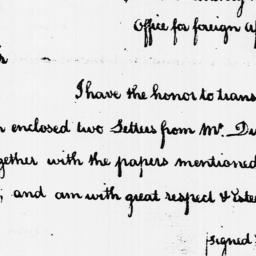 Office for foreign af
I have the honor to trans
enclosed two Letters from Mr. Du
gether with the papers mentioned
; and am with great respect & Estee
signed